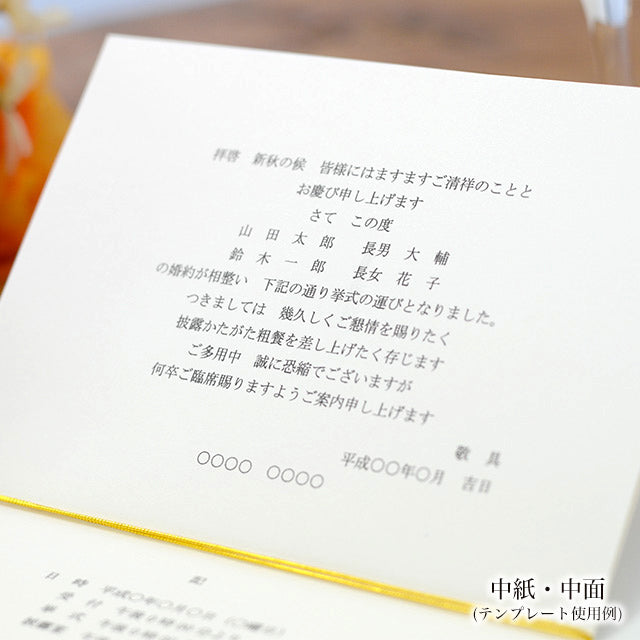 拝啓　新秋の候　皆様にはますますご清祥のことと
お慶び申し上げます
さて　この度
山　田　太　郎　　長男　大　輔
鈴　木　一　郎　　長女　花　子
の婚約が相整い　下記の通り挙式の運びとなりました。
つきましては　幾久しくご懇情を賜りたく
披露かたがた粗餐を差し上げたく存じます
ご多用中　誠に恐縮でございますが
何卒ご臨席賜りますようご案内申し上げます
敬　具
平成〇〇年〇月　吉日
〇〇〇〇　〇〇〇〇
記
日　時　平成〇年〇月〇日（〇曜日）
受　付　午後
挙　式　午後
披露宴　午後
中紙・中面
(テンプレート使用例)